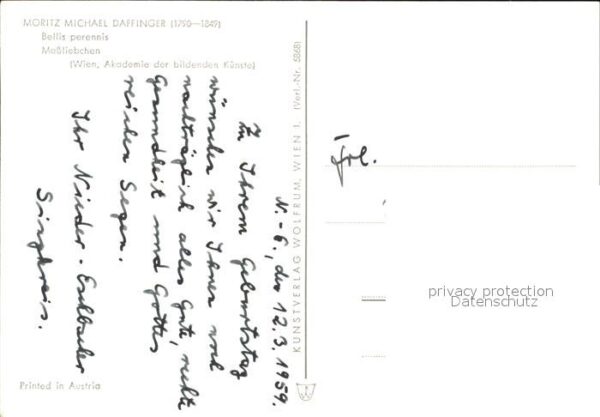 MORITZ MICHAEL DAFFINGER (1790—1849)
Bellis perennis
Maßliebchen
(Wien, Akademie der bildenden Künste)
N.-E., den 12.3.1959.
Zu Ihrem Geburtstag
wünschen wir Ihnen noch
nachträglich alles Gute, recht
Gesundheit und Gottes
reichen Segen.
Ihr Nieder-Eschbacher
Singkreis.
KUNSTVERLAG WOLFRUM, WIEN I. (Verl.-Nr. 5868)
Frl.
privacy protection
Datenschutz
Printed in Austria